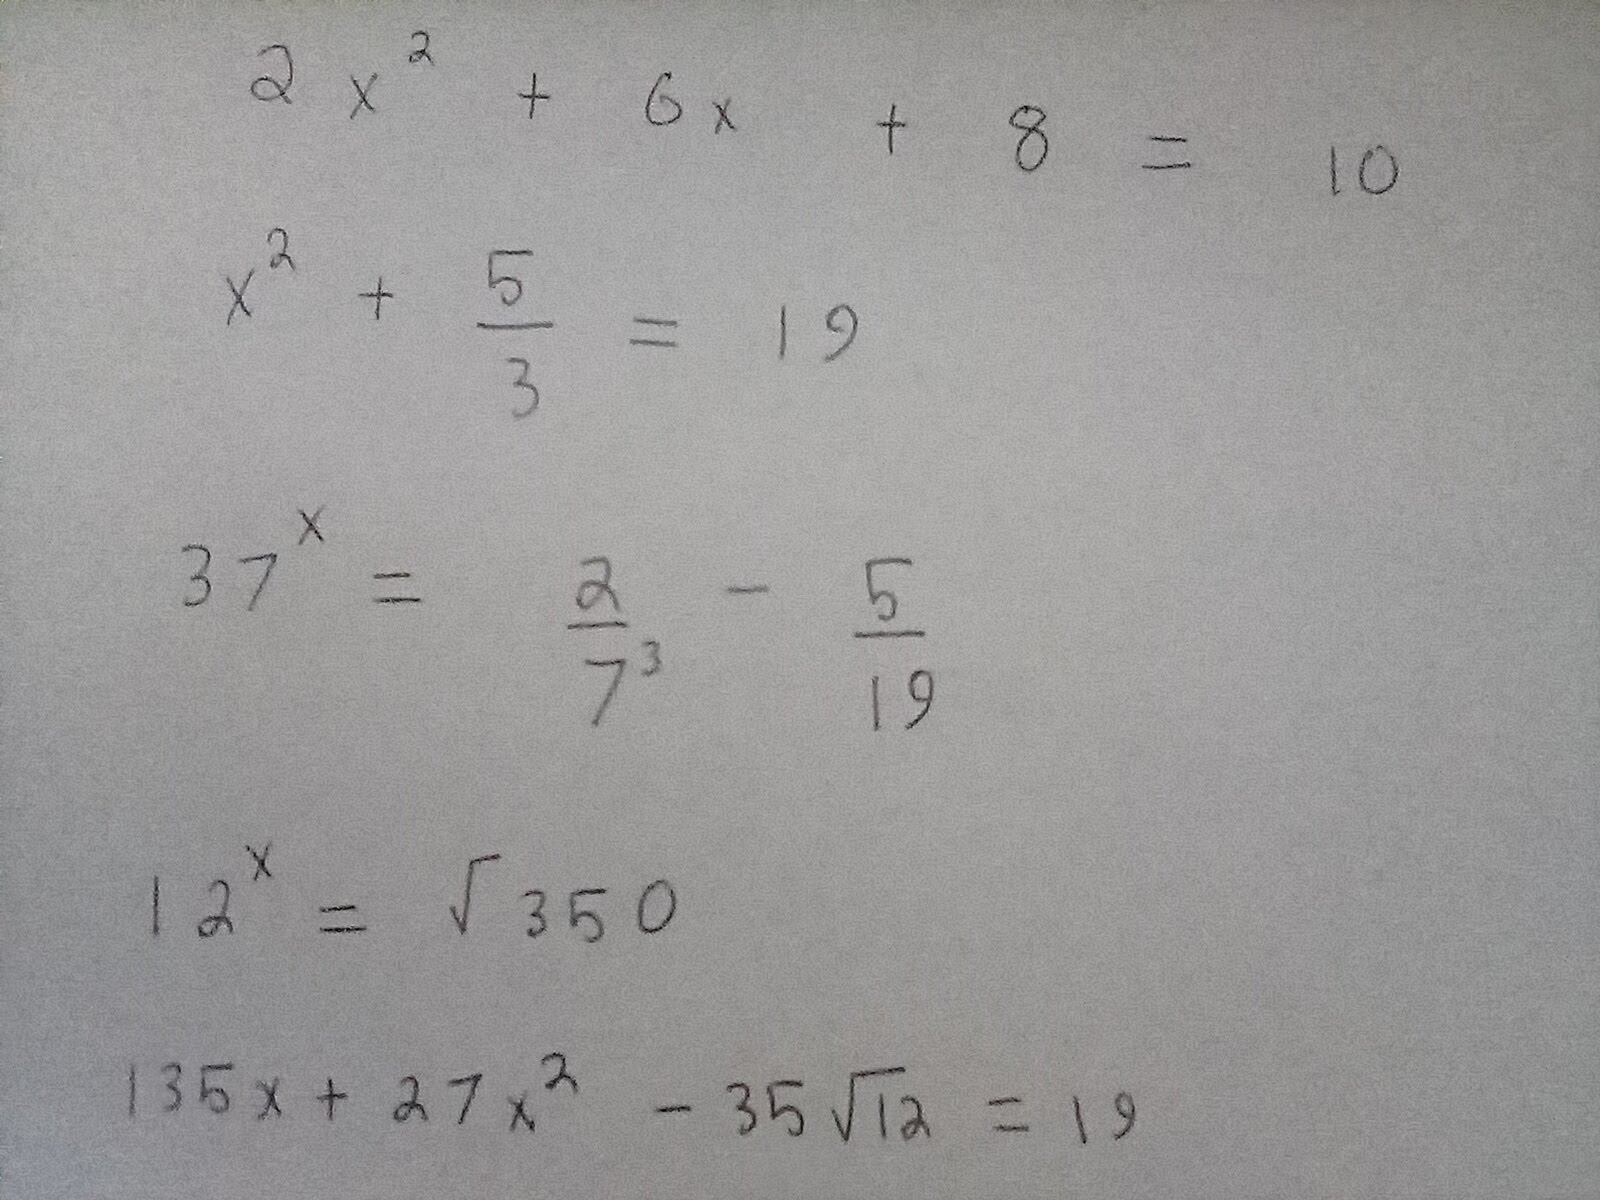 2x² + 6x + 8 = 10
x² + 5/3 = 19
37ˣ = 2/7³ - 5/19
12ˣ = √350
135x + 27x² - 35√12 = 19